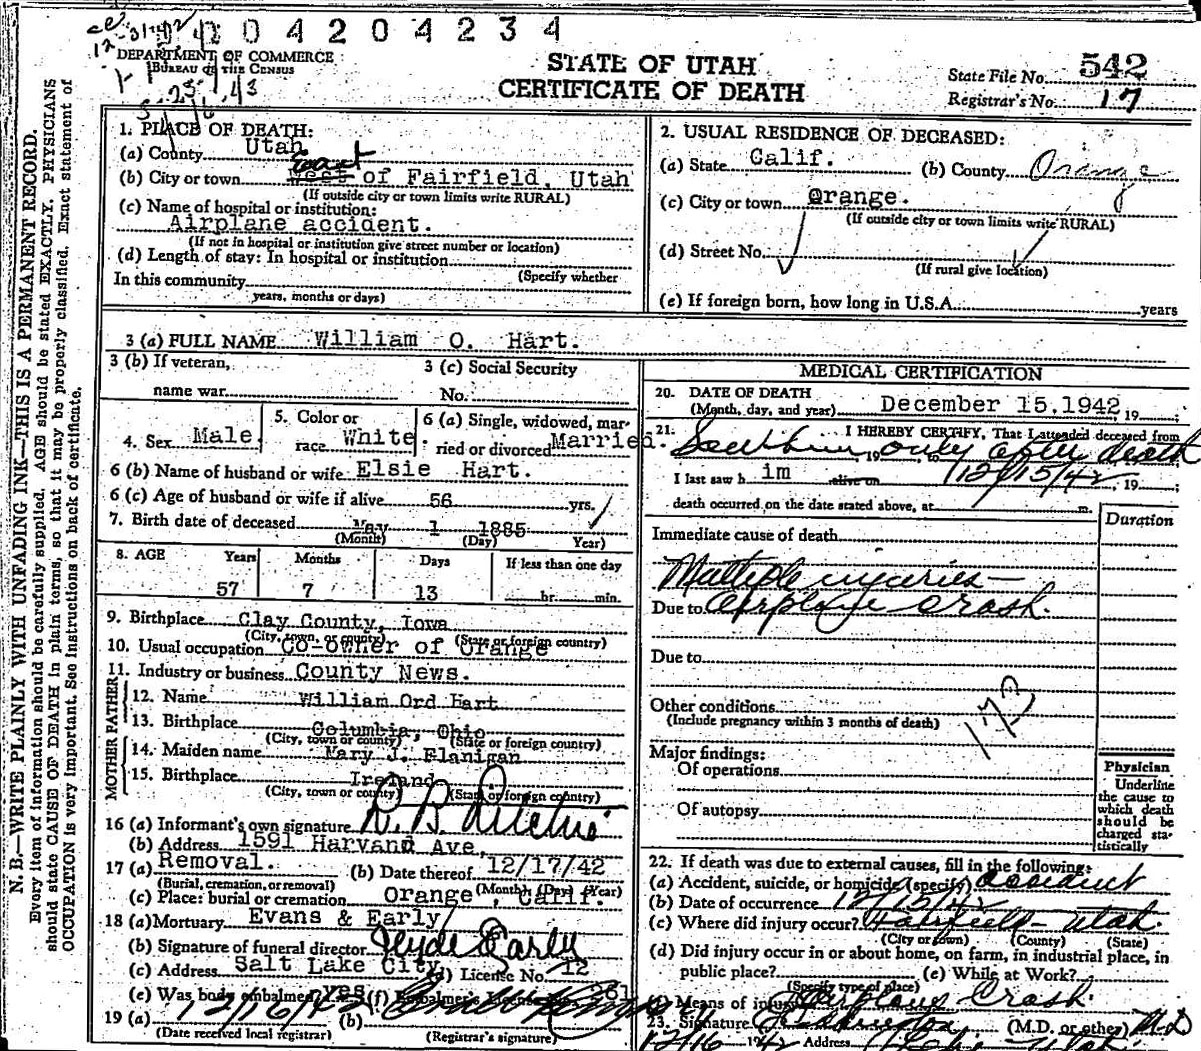 0 4 2 0 4 2 3 4
DEPARTMENT OF COMMERCE
BUREAU OF THE CENSUS
STATE OF UTAH
CERTIFICATE OF DEATH
State File No. 542
Registrar's No. 17
N. B.—WRITE PLAINLY WITH UNFADING INK—THIS IS A PERMANENT RECORD.
Every item of information should be carefully supplied. AGE should be stated EXACTLY. PHYSICIANS
should state CAUSE OF DEATH in plain terms, so that it may be properly classified. Exact statement of
OCCUPATION is very important. See instructions on back of certificate.
1. PLACE OF DEATH:
(a) County Utah
(b) City or town East of Fairfield, Utah
(If outside city or town limits write RURAL)
(c) Name of hospital or institution:
Airplane accident.
(If not in hospital or institution give street number or location)
(d) Length of stay: In hospital or institution
(Specify whether
In this community
years, months or days)
2. USUAL RESIDENCE OF DECEASED:
(a) State Calif. (b) County Orange
(c) City or town Orange.
(If outside city or town limits write RURAL)
(d) Street No.
(If rural give location)
(e) If foreign born, how long in U.S.A. years
3 (a) FULL NAME William O. Hart.
3 (b) If veteran,
name war
3 (c) Social Security
No.
4. Sex Male.
5. Color or
race White.
6 (a) Single, widowed, mar-
ried or divorced Married.
6 (b) Name of husband or wife Elsie Hart.
6 (c) Age of husband or wife if alive 56 yrs.
7. Birth date of deceased May 1 1885
(Month) (Day) Year)
8. AGE Years Months Days If less than one day
57 7 13 hr. min.
9. Birthplace Clay County, Iowa
(City, town, or county) (State or foreign country)
10. Usual occupation Co-owner of Orange
11. Industry or business County News.
FATHER
12. Name William Ord Hart
13. Birthplace Columbia, Ohio
(City, town or county) (State or foreign country)
MOTHER
14. Maiden name Mary J. Flanigan
15. Birthplace Ireland
(City, town or county) (State or foreign country)
16 (a) Informant's own signature R. B. Ritchie
(b) Address 1591 Harvard Ave.
17 (a) Removal. (b) Date thereof 12/17/42
(Burial, cremation, or removal) (Month) (Day) (Year)
(c) Place: burial or cremation Orange, Calif.
18 (a) Mortuary Evans & Early
(b) Signature of funeral director Clyde Early
(c) Address Salt Lake City (d) License No. 12
(e) Was body embalmed yes (f) Embalmer's License
19 (a) 12/16/42 (b)
(Date received local registrar) (Registrar's signature)
MEDICAL CERTIFICATION
20. DATE OF DEATH
(Month, day, and year) December 15, 1942, 19
21. I HEREBY CERTIFY, That I attended deceased from
Saw him only after death
19 to
I last saw h im alive on 12/15/42, 19 ;
death occurred on the date stated above, at m.
Duration
Immediate cause of death
Multiple injuries—
Due to Airplane crash.
Due to
Other conditions
(Include pregnancy within 3 months of death)
173
Major findings:
Of operations
Of autopsy
Physician
Underline
the cause to
which death
should be
charged sta-
tistically
22. If death was due to external causes, fill in the following:
(a) Accident, suicide, or homicide (specify) accident
(b) Date of occurrence 12/15/42
(c) Where did injury occur? Fairfield - Utah
(City or town) (County) (State)
(d) Did injury occur in or about home, on farm, in industrial place, in
public place? (e) While at Work?
(Specify type of place)
Means of injury Airplane Crash.
23. Signature (M.D. or other) M.D
12/16 1942 Address Lehi Utah